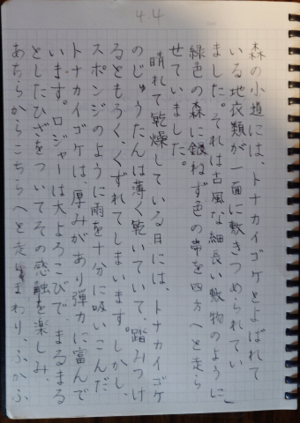 44
森の小道には、トナカイゴケとよばれて
いる地衣類が一面に敷きつめられてい
ました。それは古風な細長い敷物のように、
緑色の森に銀ねず色の帯を四方へと走ら
せていました。
晴れて乾燥している日には、トナカイゴケ
のじゅうたんは薄く乾いていて、踏みつけ
るともろく、くずれてしまいます。しかし、
スポンジのように雨を十分に吸いこんだ
トナカイゴケは、厚みがあり弾力に富んで
います。ロジャーは大よろこびで、まるまる
としたひざをついてその感触を楽しみ、
あちらからこちらへと走りまわり、ふかふ